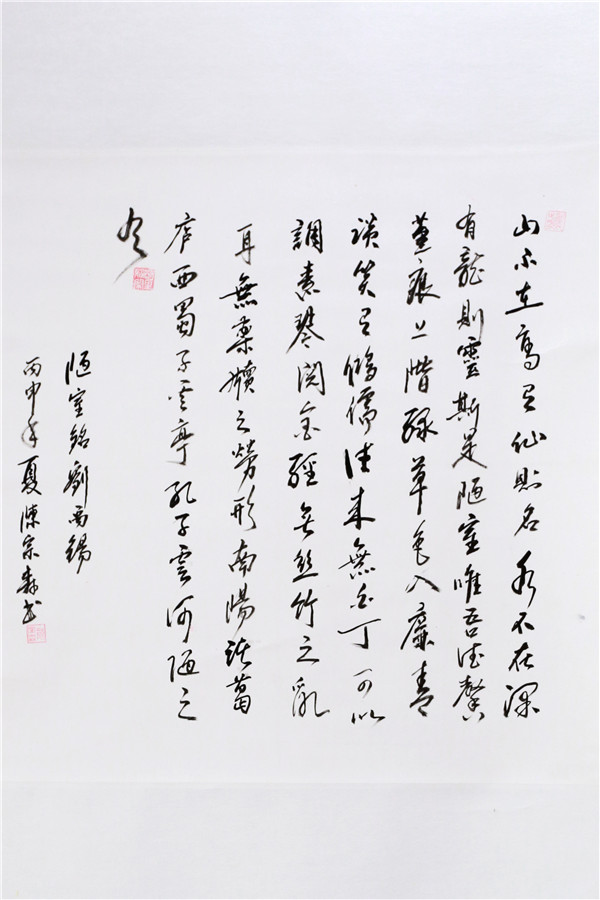 山不在高有仙則名水不在深
有龍則靈斯是陋室唯吾德馨
薹痕上階綠草色入簾青
談笑有鴻儒往來無白丁可以
調素琴閱金經無絲竹之亂
耳無案牘之勞形南陽諸葛
庐西蜀子云亭孔子雲何陋之
有
陋室銘劉禹錫
丙申年夏陳宗森书